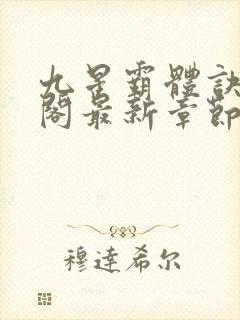 九星霸體訣
閣最新章節
穆達希尔